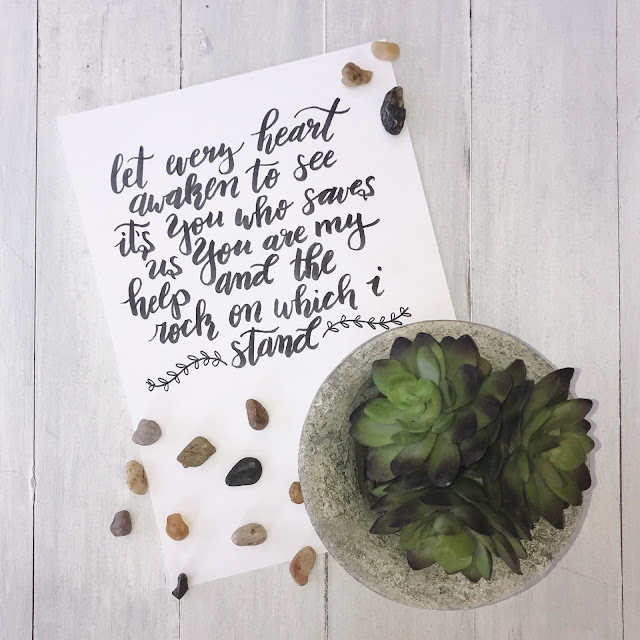 let every heart
awaken to see
it's You who saves
us You are my
help and the
rock on which i
stand